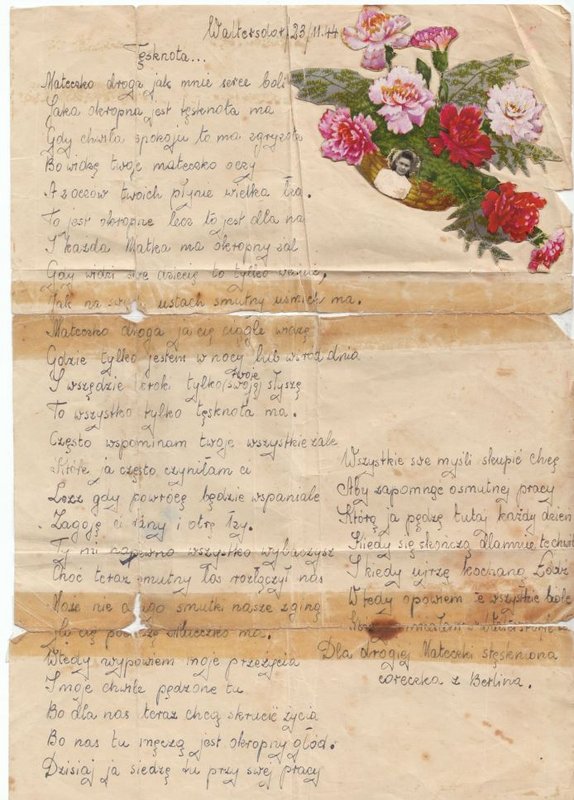 Waltersdorf 23/11.44
Tęsknota...
Mateczko droga jak mnie serce boli
Jaka okropna jest tęsknota ma
Gdy chwila spokoju to ma zgryzota
Bo widzę twoje mateczko oczy
A z oczów twoich płynie wielka łza.
To jest okropne lecz to jest dla na
I każda Matka ma okropny żal
Gdy widzi swe dziecię to tylko
Jak na swych ustach smutny uśmiech ma.
Mateczko droga ja cię ciągle widzę
Gdzie tylko jestem w nocy lub wśród dnia
I wszędzie kroki tylko (swoje) twoje słyszę
To wszystko tylko tęsknota ma.
Często wspominam twoje wszystkie żale
Które ja często czyniłam ci
Lecz gdy powrócę będzie wspaniale
Zagoję ci rany i otrę łzy.
Ty mi zapewno wszystko wybaczysz
Choć teraz smutny los rozłączył nas
Może nie długo smutki nasze zginą
cię Mateczko ma.
Wtedy wypowiem moje przeżycia
I moje chwile pędzone tu
Bo dla nas teraz chcą skrucić życia
Bo nas tu męczą jest okropny głód.
Dzisiaj ja siedzę tu przy swej pracy
Wszystkie swe myśli skupić chcę
Aby zapomnęć o smutnej pracy
Którą ja pędzę tutaj każdy dzień
Kiedy się skończą dla mnie te
I kiedy ujrzę kochaną Łódź
Wtedy opowiem te wszystkie bole
Dla drogiej Mateczki stęskniona
córeczka z Berlina.